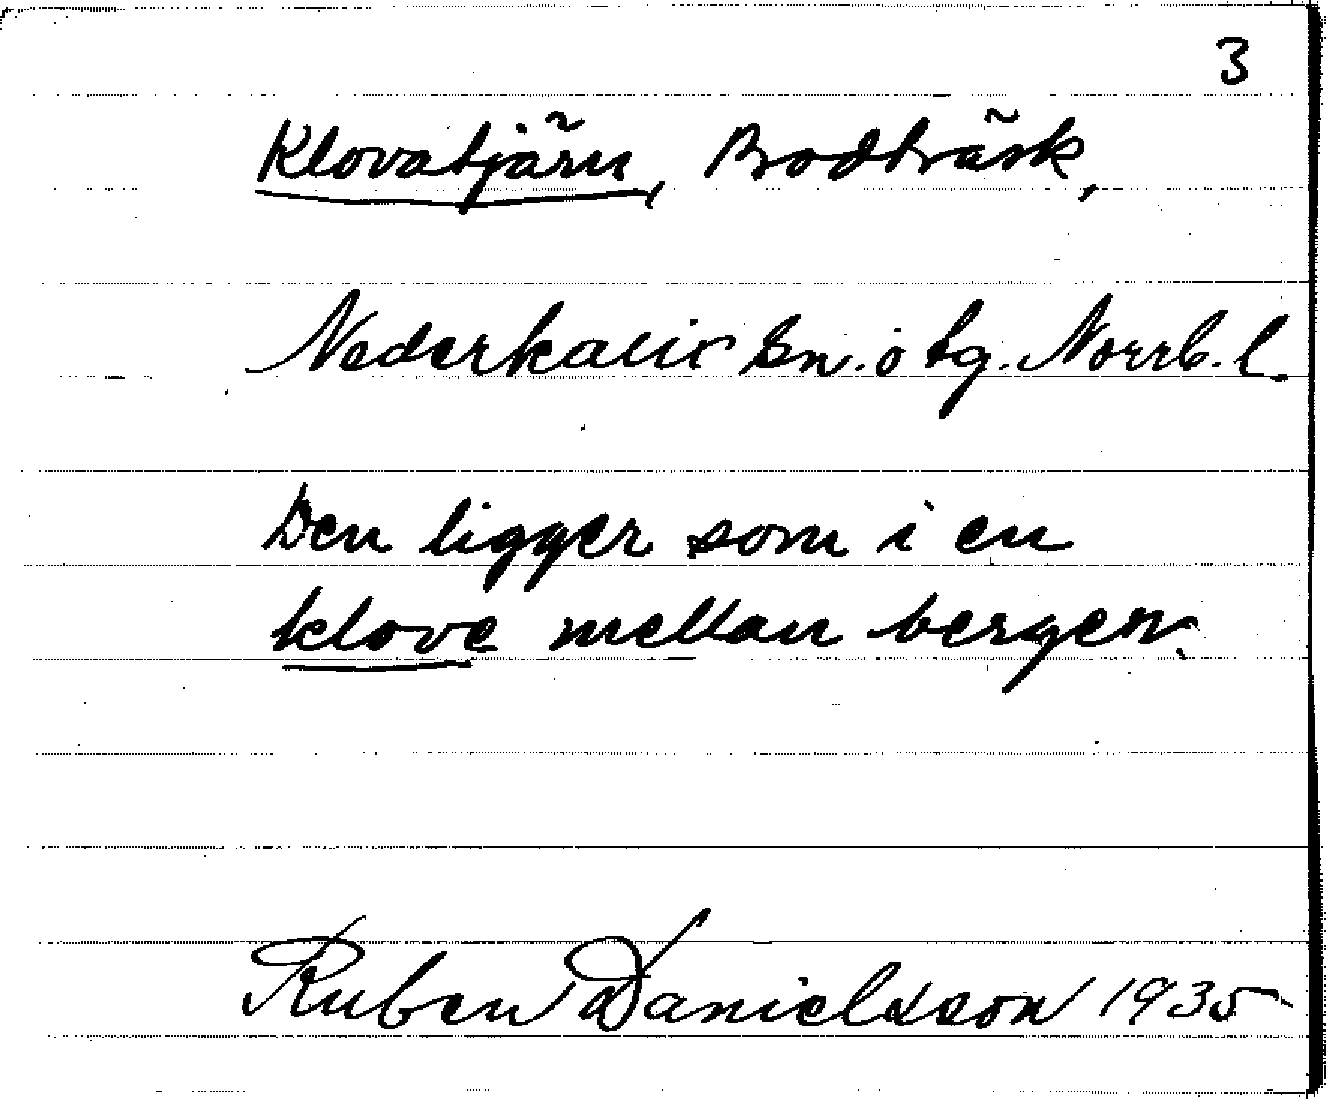 3
Klovatjärn, Bodträsk,
Nederkalix sn. o tg. Norrb. l.
Den ligger som i en
klove mellan bergen.
Ruben Danielsson 1935